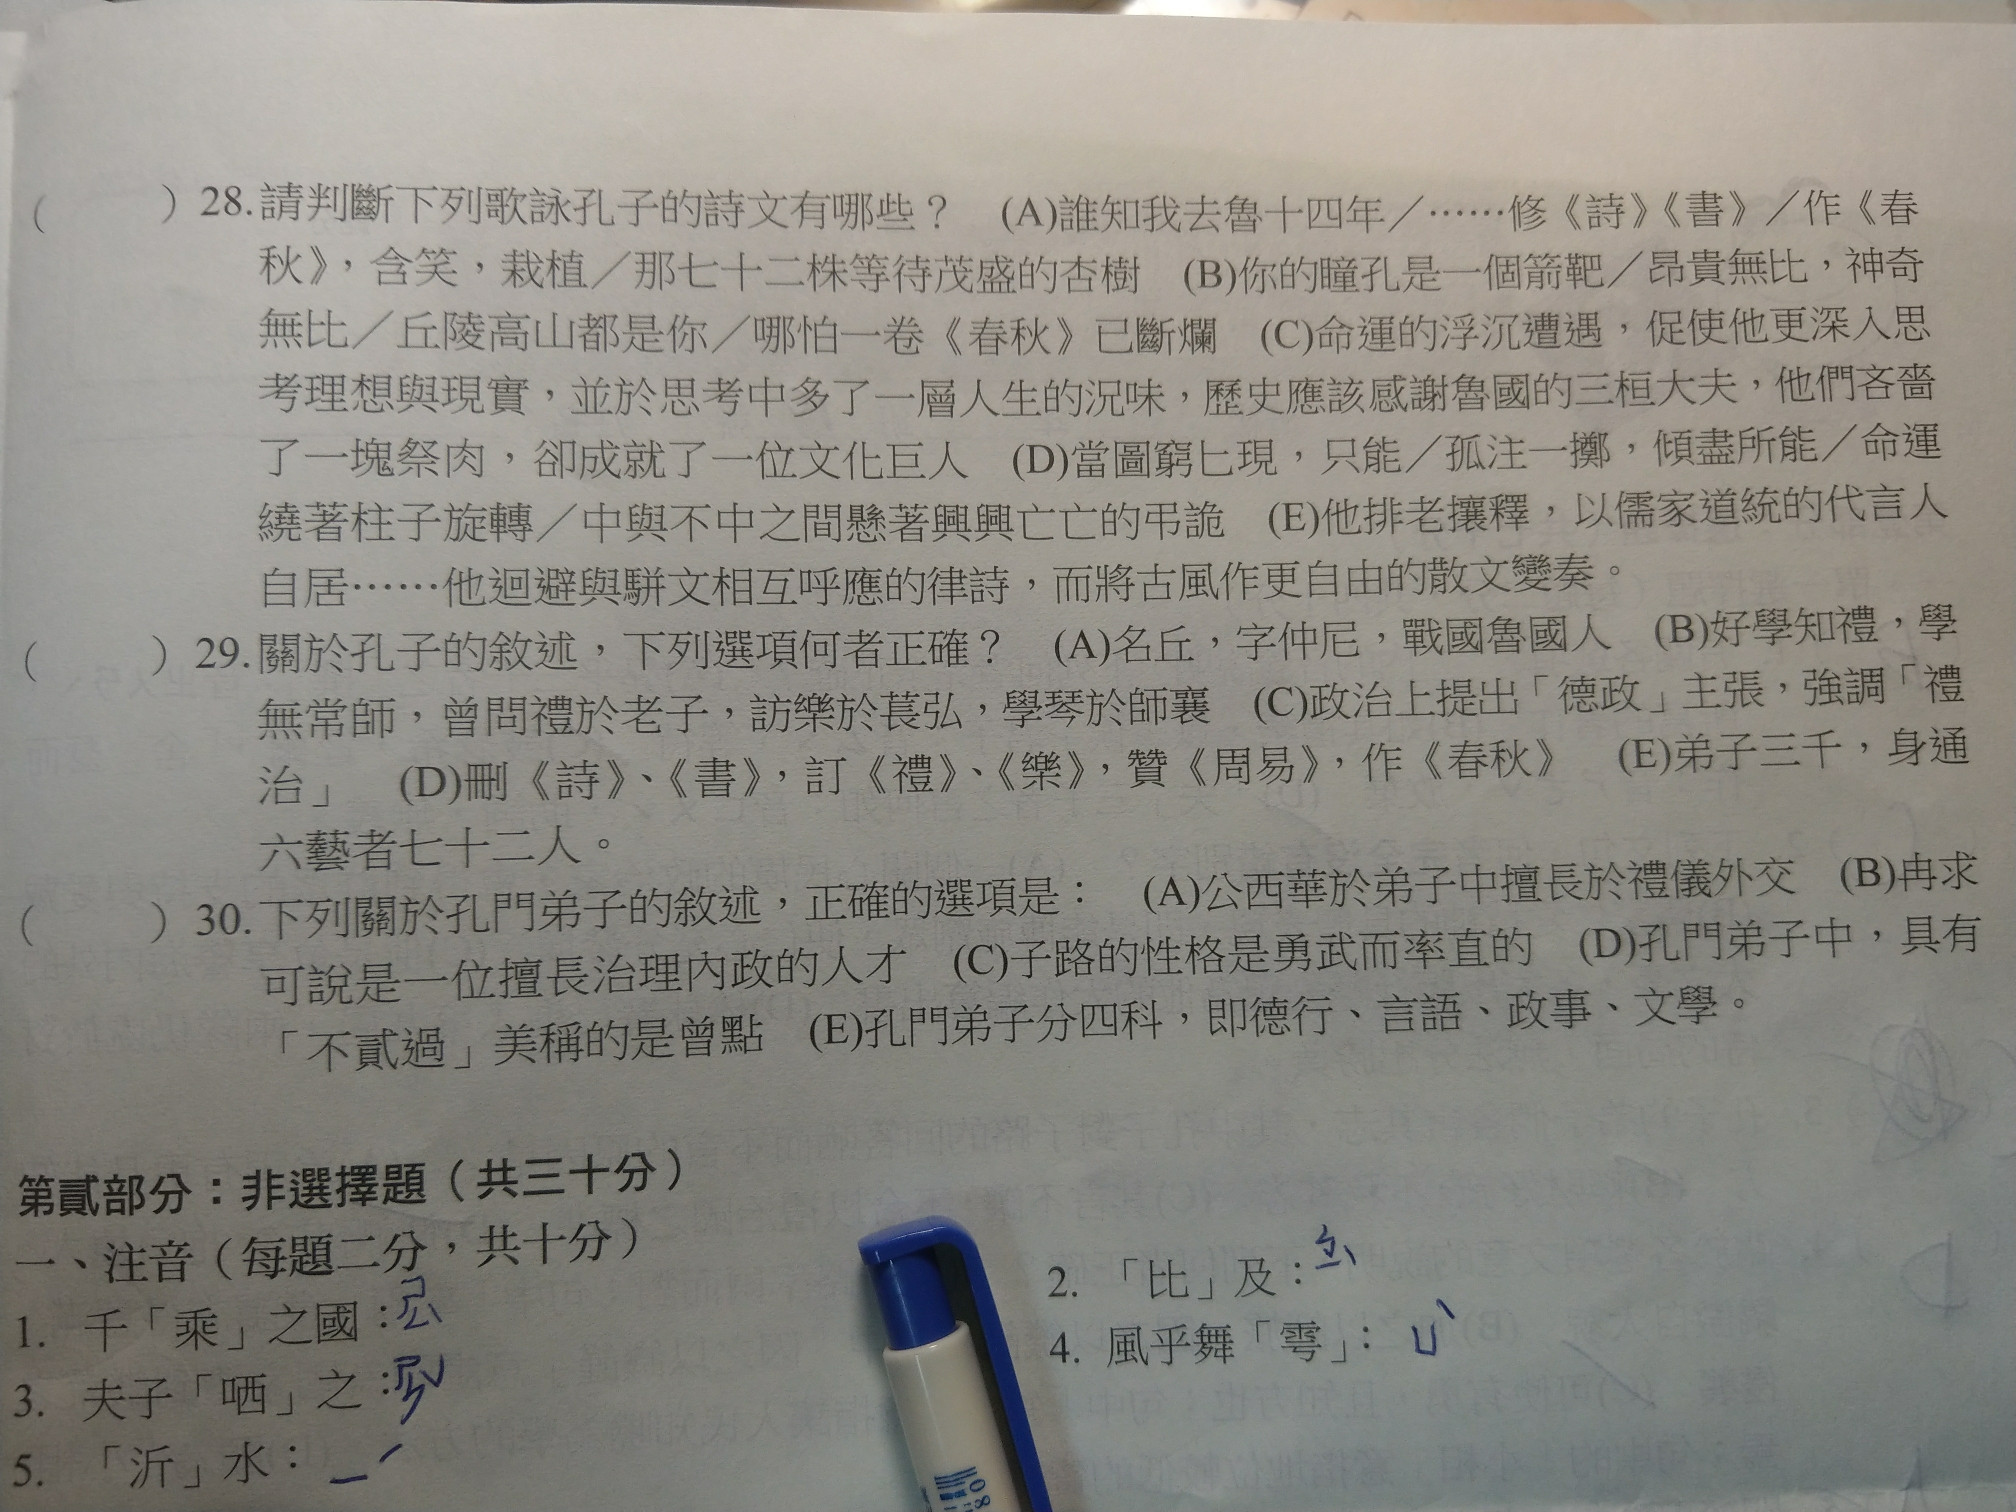 (　　) 28.請判斷下列歌詠孔子的詩文有哪些？　(A)誰知我去魯十四年／……修《詩》《書》／作《春
秋》，含笑，栽植／那七十二株等待茂盛的杏樹　(B)你的瞳孔是一個箭靶／昂貴無比，神奇
無比／丘陵高山都是你／哪怕一卷《春秋》已斷爛　(C)命運的浮沉遭遇，促使他更深入思
考理想與現實，並於思考中多了一層人生的況味，歷史應該感謝魯國的三桓大夫，他們吝嗇
了一塊祭肉，卻成就了一位文化巨人　(D)當圖窮匕現，只能／孤注一擲，傾盡所能／命運
繞著柱子旋轉／中與不中之間懸著興興亡亡的弔詭　(E)他排老攘釋，以儒家道統的代言人
自居……他迴避與駢文相互呼應的律詩，而將古風作更自由的散文變奏。
(　　) 29.關於孔子的敘述，下列選項何者正確？　(A)名丘，字仲尼，戰國魯國人　(B)好學知禮，學
無常師，曾問禮於老子，訪樂於萇弘，學琴於師襄　(C)政治上提出「德政」主張，強調「禮
治」　(D)刪《詩》、《書》，訂《禮》、《樂》，贊《周易》，作《春秋》　(E)弟子三千，身通
六藝者七十二人。
(　　) 30.下列關於孔門弟子的敘述，正確的選項是：　(A)公西華於弟子中擅長於禮儀外交　(B)冉求
可說是一位擅長治理內政的人才　(C)子路的性格是勇武而率直的　(D)孔門弟子中，具有
「不貳過」美稱的是曾點　(E)孔門弟子分四科，即德行、言語、政事、文學。
第貳部分：非選擇題（共三十分）
一、注音（每題二分，共十分）
1. 千「乘」之國：ㄕㄥˋ
2. 「比」及：ㄅㄧˋ
3. 夫子「哂」之：ㄕㄣˇ
4. 風乎舞「雩」：ㄩˊ
5. 「沂」水：ㄧˊ